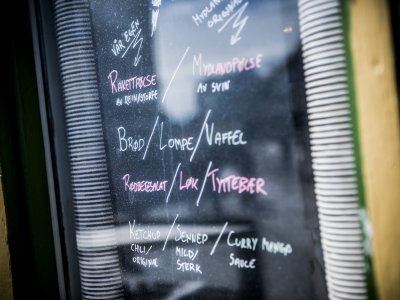 VÅR EGEN
MYDLAND
ORIGINAL
RAKETTPØLSE / MYDLANDPØLSE
AV REIN/STORFE
AV SVIN
BRØD/LOMPE/VAFFEL
RØDBETSALAT/LØK/TYTTEBÆR
KETCHUP/SENNEP/CURRY MANGO
CHILI/
ORIGINAL
MILD/
STERK
SAUCE